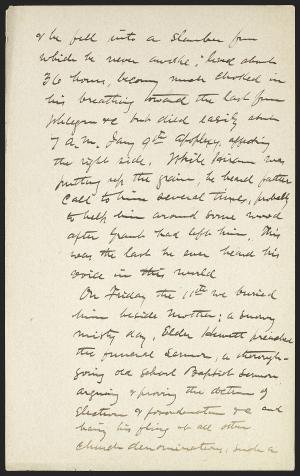 & he fell into a slumber from
which he never awoke; lived about
36 hours, becoming much choked in
his breathing toward the last from
phlegm &c but died easily about
7 A.M. Jany 9th Apoplexy, affecting
the right side. While Hiram was
putting up the grain, he heard father
call to him several times, probably
to help him around some wood
after Grant had left him. This
was the last he ever heard his
voice in this world
On Friday the 11th we buried
him beside Mother; a snowy
misty day. Elder Hewett preached
the funeral sermon, a thorough-
going old School Baptist sermon
arguing & proving the doctrine of
Election & foreordination &c and
having his fling at all other
church denominations, such a